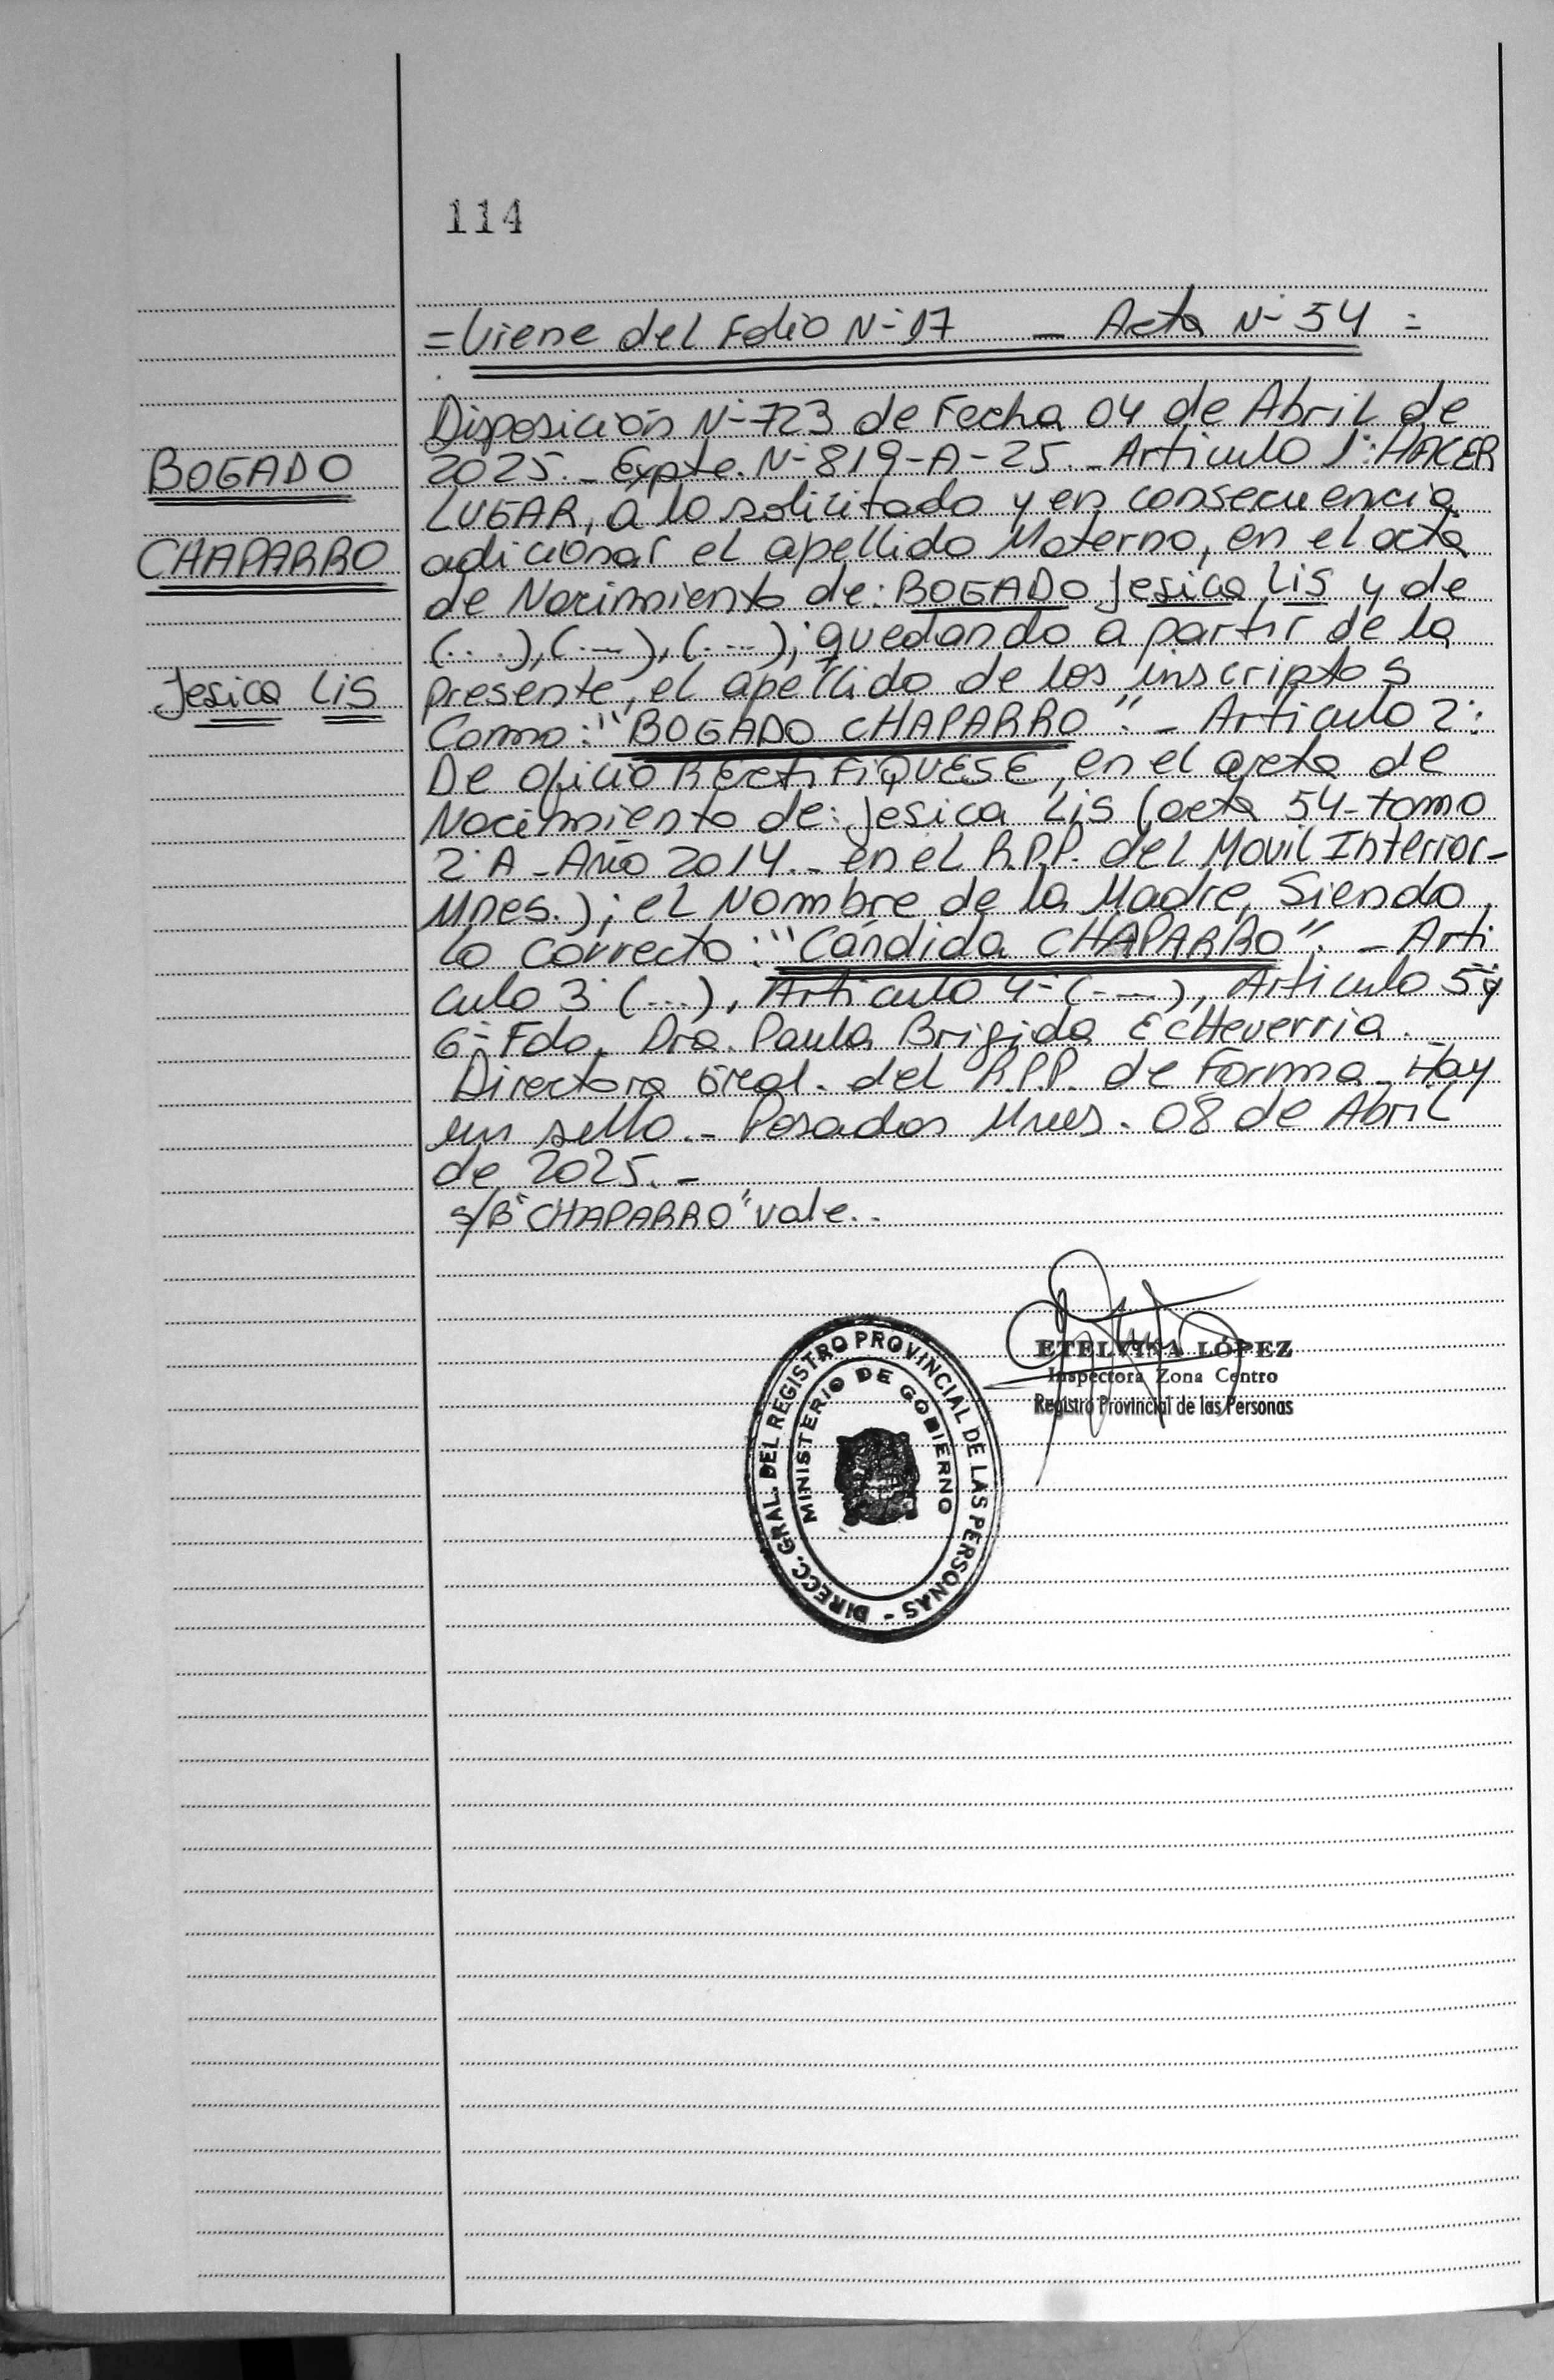 114
=Viene del Folio N-17 - Acta N-54=
Disposición N-723 de Fecha 04 de Abril de
BOGADO
2025.- Expte. N-819-A-25.- Articulo 1: HACER
LUGAR, a lo solicitado y en consecuencia
CHAPARRO
adicionar el apellido Materno, en el acta
de Nacimiento de: BOGADO Jesica Lis y de
(...),(...),(...); quedando a partir de la
Jesica Lis
presente, el apellido de los inscriptos
Como: "BOGADO CHAPARRO".- Articulo 2:
De oficio RECTIFIQUESE, en el acta de
Nacimiento de: Jesica Lis (acta 54-tomo
2°A-Año 2014.- en el R.P.P. del Movil Interior-
Mnes.); el Nombre de la Madre, Siendo
lo correcto: "Cándida CHAPARRO".- Arti
culo 3° (...), Articulo 4- (...), Articulo 5 y
6- Fdo. Dra. Paula Brigida Echeverria.
Directora Gral. del R.P.P. de Forma- Hay
un sello.- Posadas Mnes. 08 de Abril
de 2025.-
s/B "CHAPARRO" vale.-
ETELVINA LÓPEZ
Inspectora Zona Centro
Registro Provincial de las Personas
DIRECC. GRAL. DEL REGISTRO PROVINCIAL DE LAS PERSONAS -
MINISTERIO DE GOBIERNO